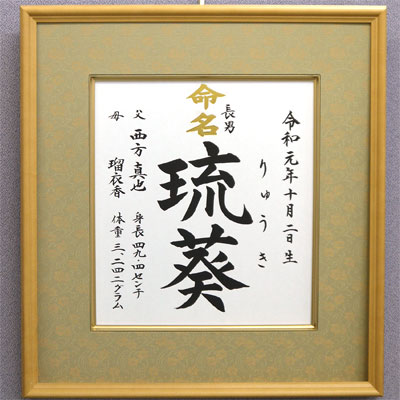 令和元年十月二日生
りゅうき
命名
長男
琉葵
父 西方真也
母 瑠衣香
身長 四九.四センチ
体重 三、二四二グラム